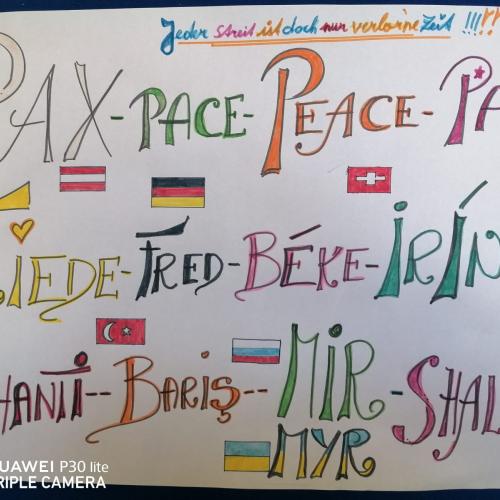 Jeder streit ist doch nur verlor'ne Zeit !!!
PAX - PACE - PEACE - PA
IEDE - FRED - BÉKE - IRÍN
HANTI -- BARIŞ -- MIR - SHAL
MYR
UAWEI P30 lite
RIPLE CAMERA